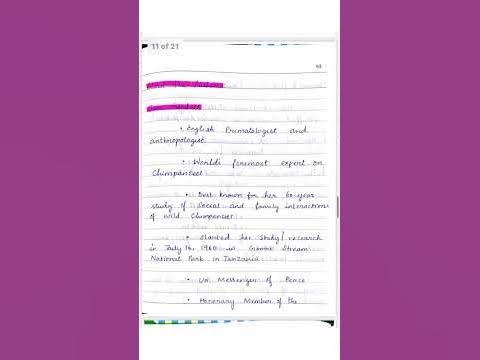 11 of 21
• English Primatologist and
anthropologist
• World's foremost expert on
Chimpanzees
• Best known for her 60-year
study of Social and family interactions
of wild Chimpanzees
• Started her Study/research
in July 14, 1960 in Gombe Stream
National Park in Tanzania
• UN Messenger of Peace
• Honorary Member of the